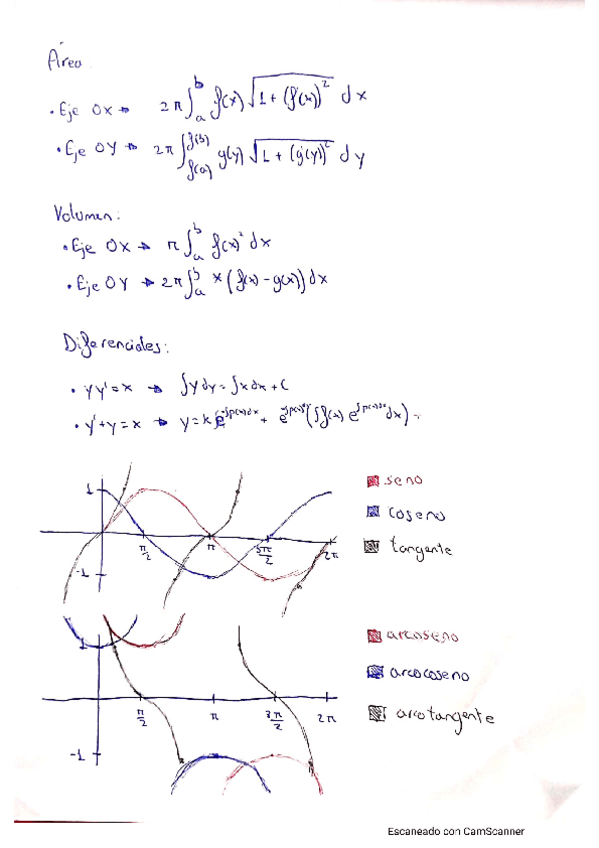 Área
• Eje OX → 2π∫ₐᵇ f(x) √(1 + (f'(x))²) dx
• Eje OY → 2π∫_{f(a)}^{f(b)} g(y) √(1 + (g'(y))²) dy
Volumen:
• Eje OX → π∫ₐᵇ f(x)² dx
• Eje OY → 2π∫ₐᵇ x (f(x) - g(x)) dx
Diferenciales:
• yy' = x → ∫y dy = ∫x dx + C
• y' + y = x → y = k e^{-∫p(x)dx} + e^{-∫p(x)dx} (∫f(x) e^{∫p(x)dx} dx)
1
π/2
π
3π/2
2π
-1
seno
coseno
tangente
1
π/2
π
3π/2
2π
-1
arcoseno
arcocoseno
arcotangente
Escaneado con CamScanner